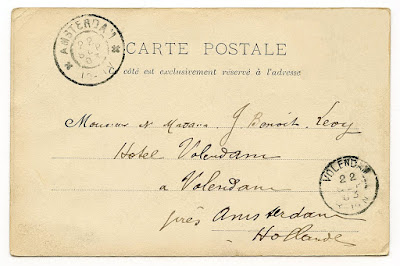 AMSTERDAM
22
CARTE POSTALE
côté est exclusivement réservé à l'adresse
Monsieur & Madame J Benoit-Levy
Hotel Volendam
VOLENDAM
22
à Volendam
près Amsterdam
Hollande